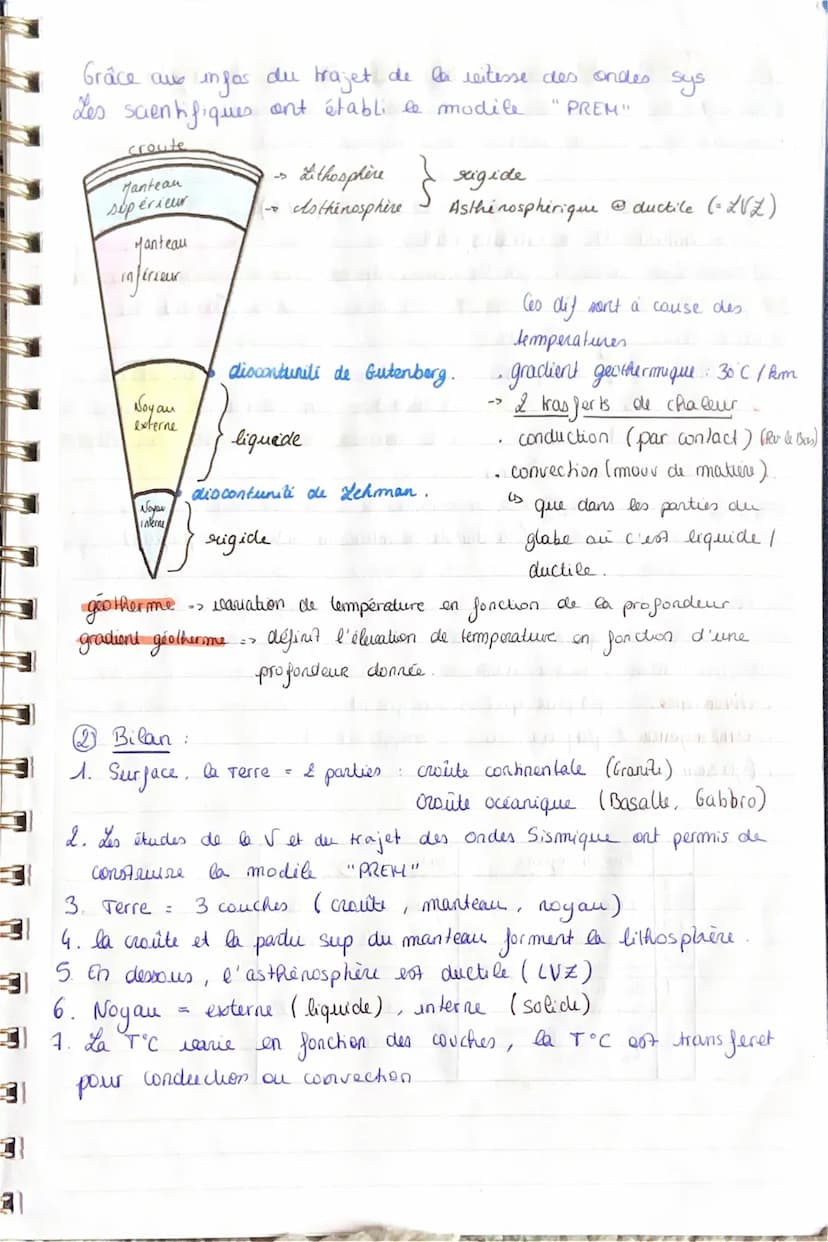 Grâce aux infos du trajet de la vitesse des ondes sys
Les scientifiques ont établi le modèle "PREM"
croute
Manteau
supérieur
-> Lithosphère } rigide
-> Asthénosphère Asthénosphérique @ ductile (= LVZ)
Manteau
inférieur
Ces dif sont à cause des
temperatures
discontunité de Gutenberg.
. gradient géothermique : 30°C / km
Noyau
externe
liquide
-> 2 trasferts de chaleur
. conduction (par contact)
. convection (mouv de matière)
discontunité de Lehman.
↳ que dans les parties du
globe où c'est liquide /
ductile.
Noyau
interne
rigide
géotherme -> variation de température en fonction de la profondeur
gradient géotherme => définit l'élevation de temperature en fonction d'une
profondeur donnée.
② Bilan :
1. Surface, la Terre = 2 parties : croûte continentale (Granite)
croûte océanique (Basalte, Gabbro)
2. Les études de la V et du trajet des ondes Sismique ont permis de
construire la modèle "PREM"
3. Terre = 3 couches (croûte, manteau, noyau)
4. la croûte et la partie sup du manteau forment la lithosphère.
5. En dessous, l'asthénosphère est ductile (LVZ)
6. Noyau = externe (liquide), interne (solide)
7. La T°C varie en fonction des couches, la T°C est transferet
pour conduction ou convection